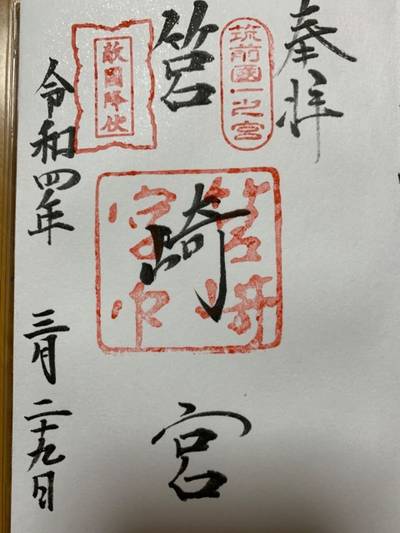 奉拝
筑前國一之宮
筥崎宮
敵國降伏
筥崎宮印
令和四年 三月二十九日